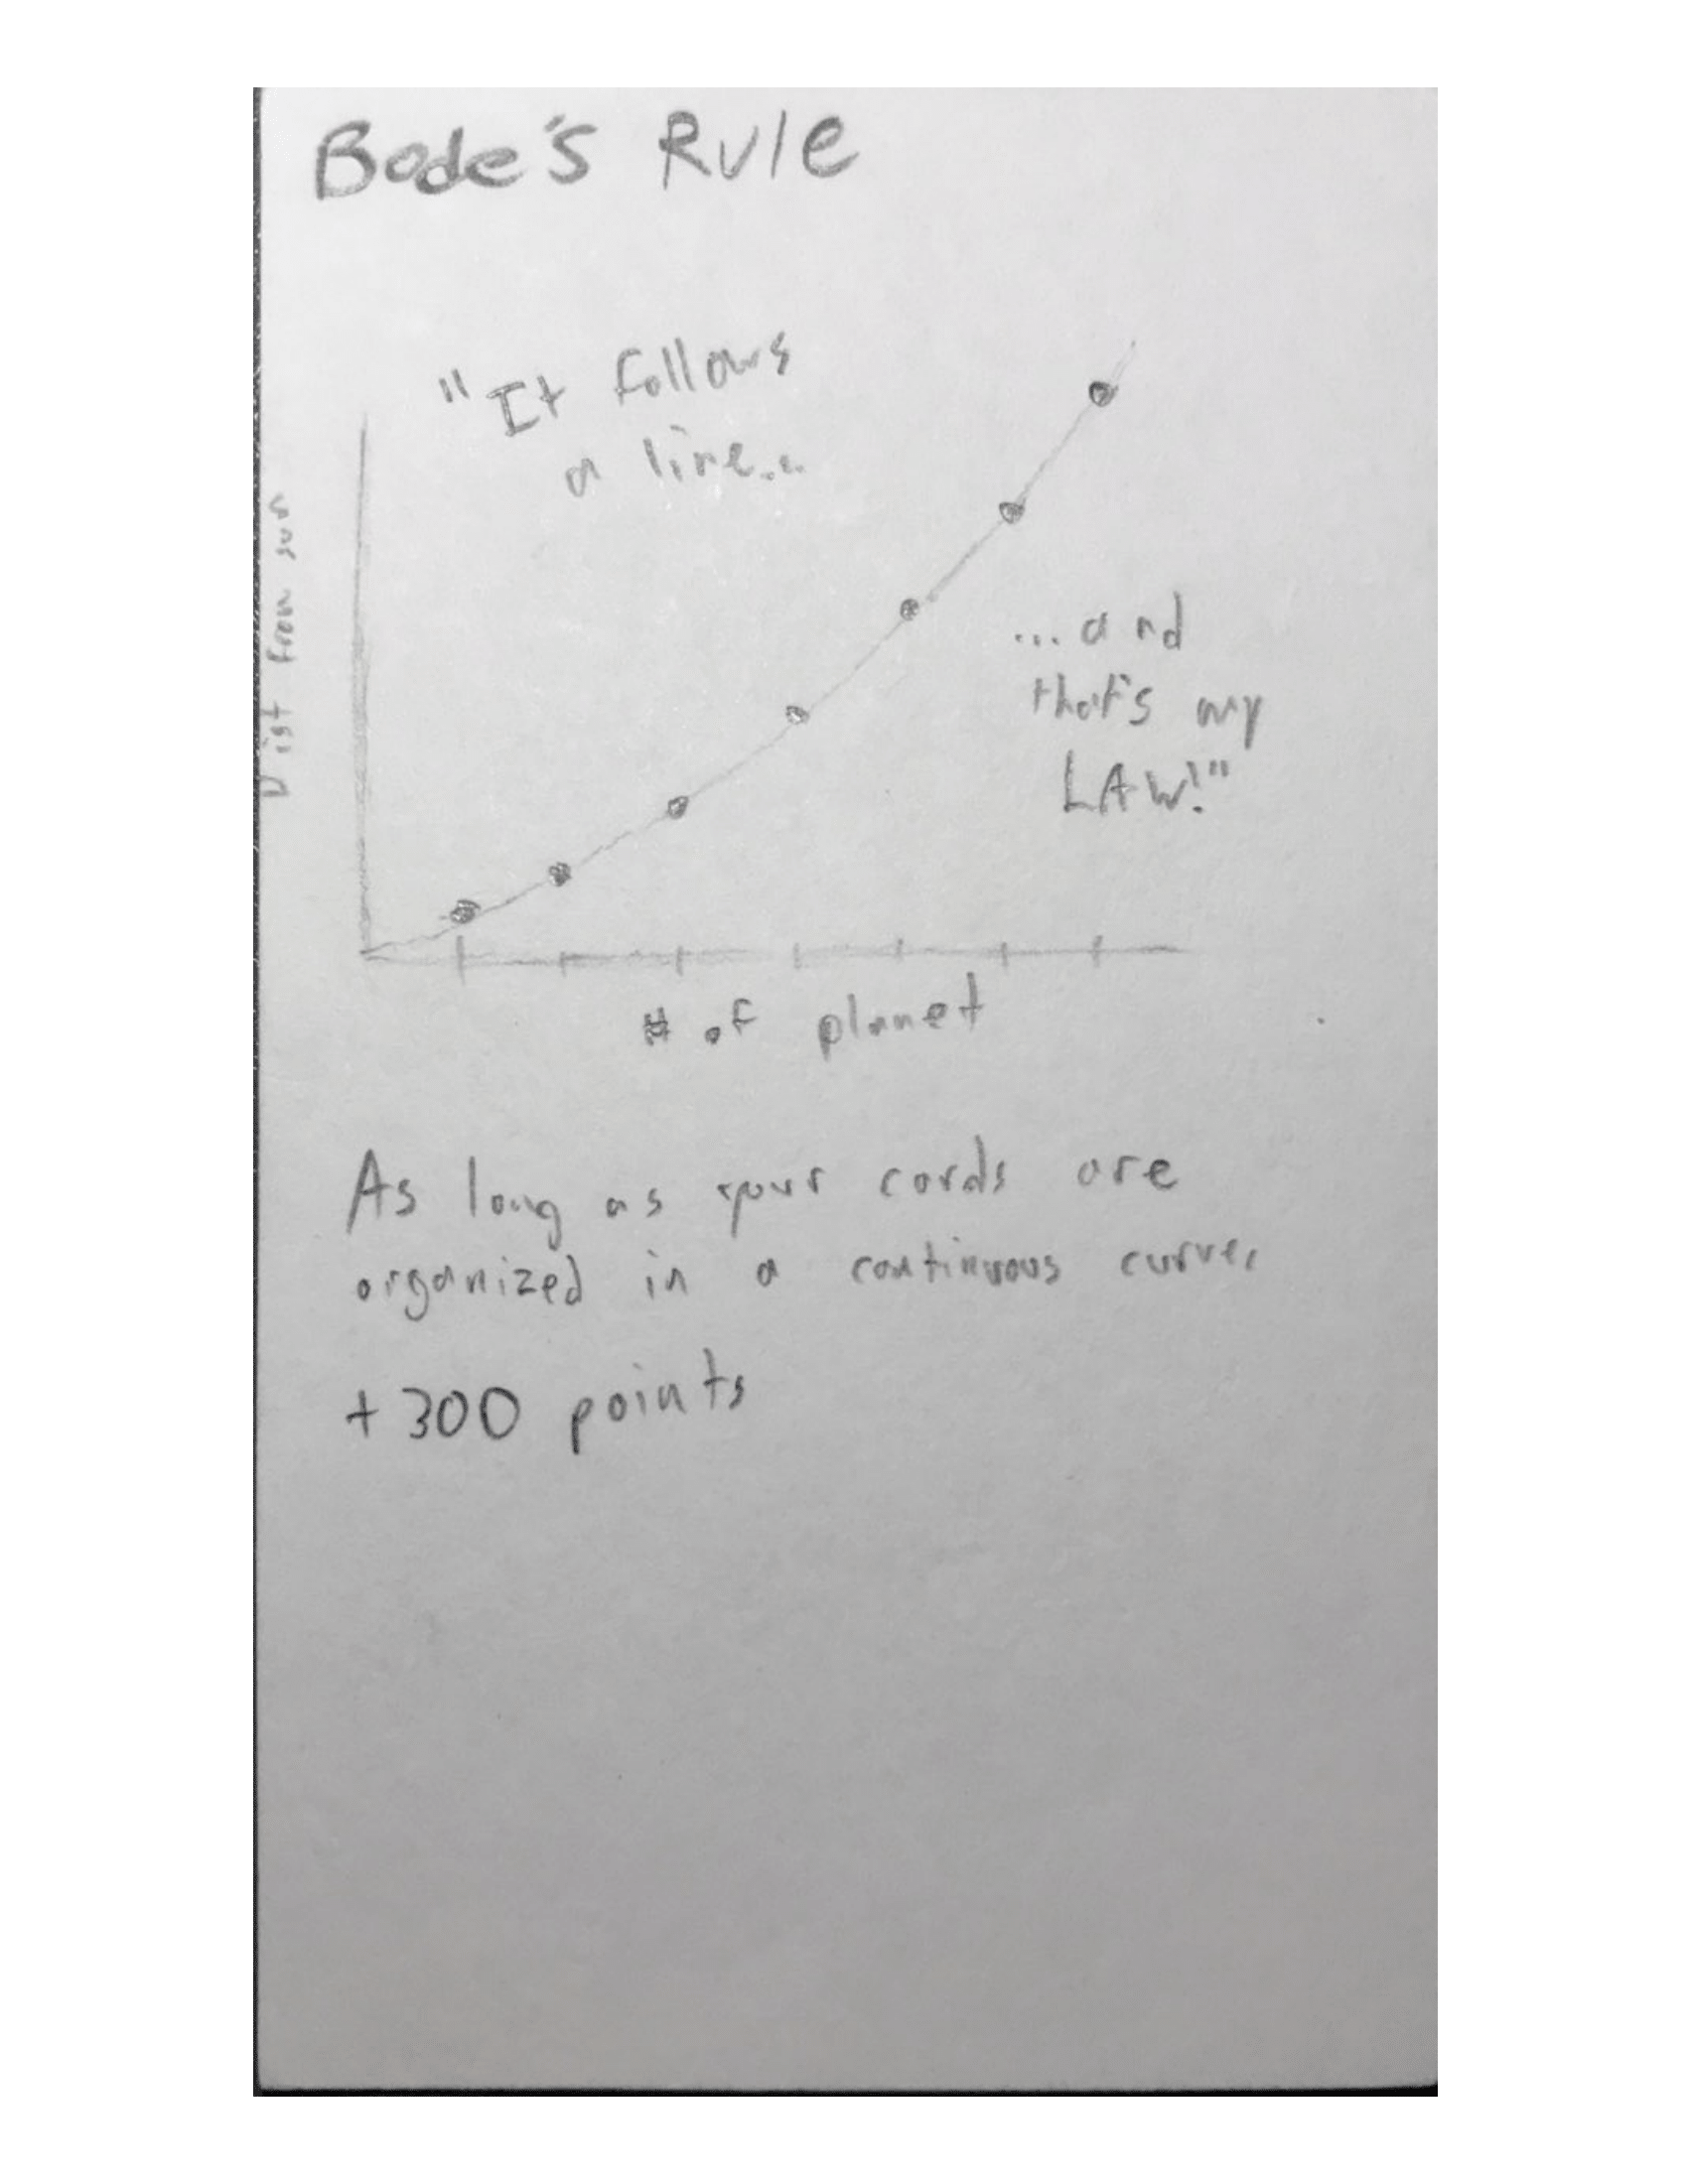 Bode's Rule
"It follows
a line...
Dist from sun
...and
that's my
LAW!"
# of planet
As long as your cards are
organized in a continuous curve,
+300 points